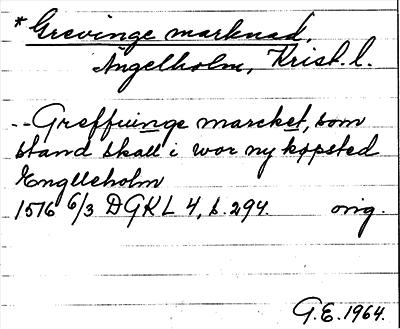 *Grevinge marknad.
Ängelholm, Krist. l.
--Greffuinge marcket, som
stand skall i wor ny køpsted
Englleholm
1516 6/3 DGKL 4, s. 294. orig.
G.E. 1964.